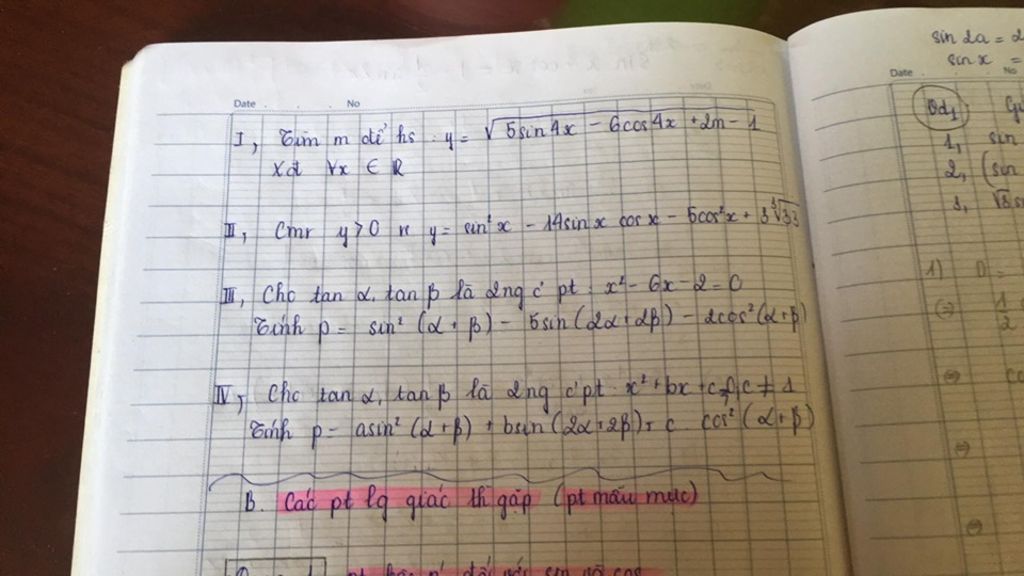 Date No
I, Tìm m để hs : y = √5sin4x - 6cos4x + 2m - 1
Xđ ∀x ∈ R
II, Cmr y > 0 vs y = sin²x - 14sin x cos x - 5cos²x + 3∛33
III, Cho tan α, tan β là 2ng c' pt : x² - 6x - 2 = 0
Tính p = sin² (α + β) - 5sin (2α + 2β) - 2cos² (α + β)
IV, Cho tan α, tan β là 2ng c' pt : x² + bx + c = 0, c ≠ 1
Tính p = asin² (α + β) + bsin (2α + 2β) + c . cos² (α + β)
B. Các pt lg giác th gặp (pt mẫu mực)
sin 2a = 2
sin x =
Date No
1, sin
2, (sin
1)